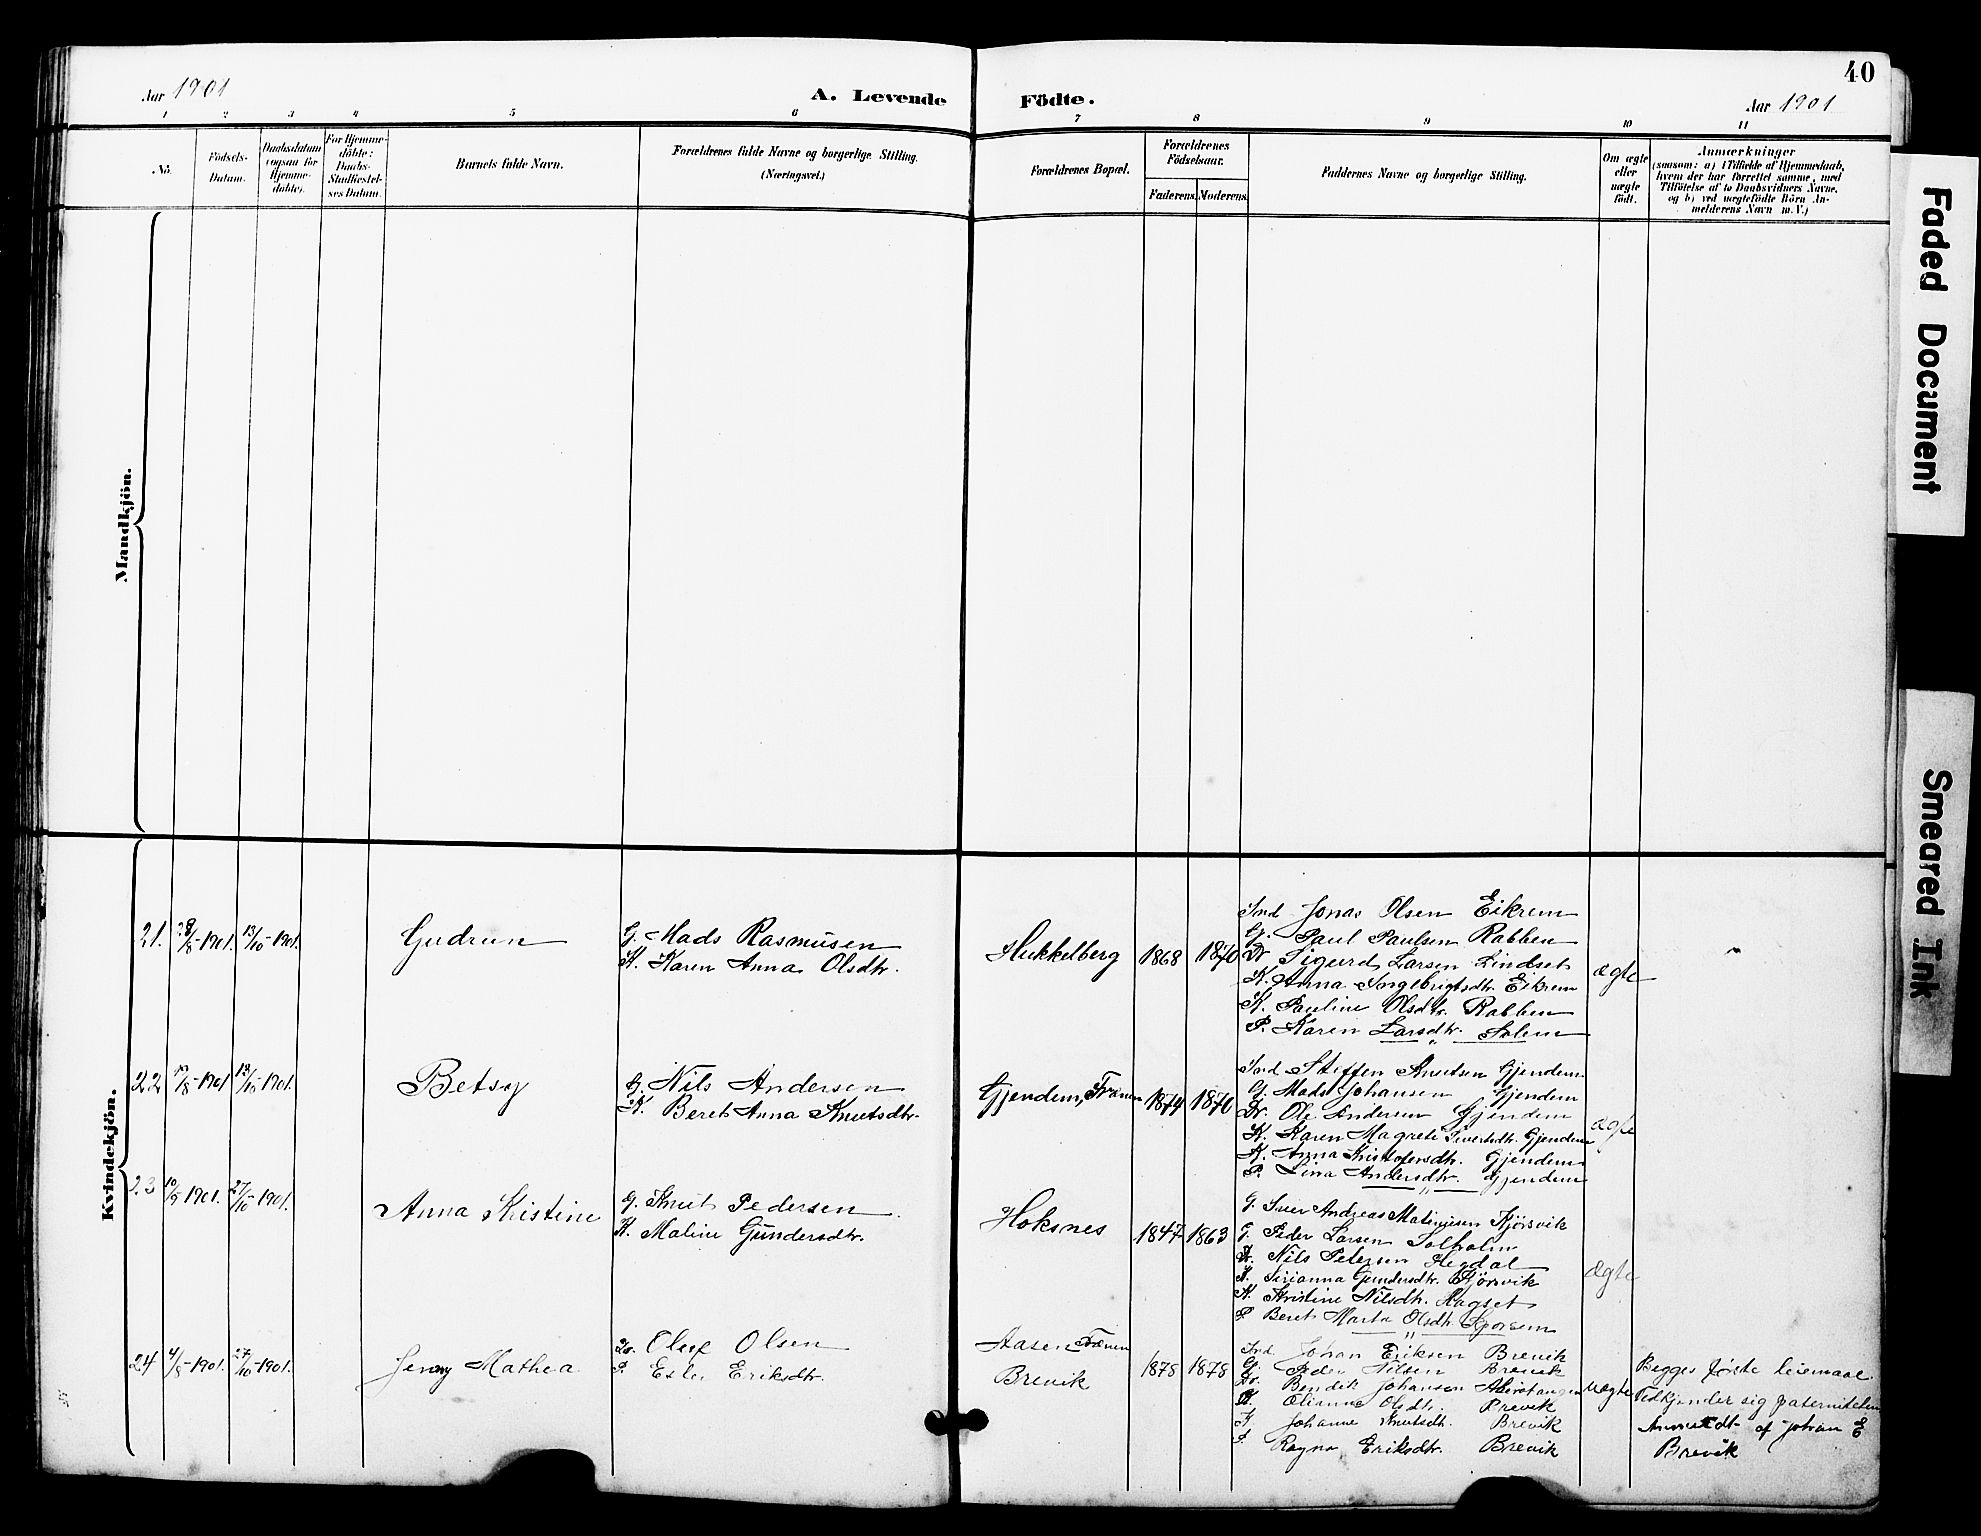 40
Aar 1901
A. Levende Födte.
Aar 1901
1 2 3 4 5 6 7 8 9 10 11
No.
Födsels-
Datum.
Daabsdatum
(ogsaa for
Hjemme-
döbte).
For Hjemme-
döbte:
Daabs-
Stadfæstel-
ses Datum.
Barnets fulde Navn.
Forældrenes fulde Navne og borgerlige Stilling.
(Næringsvei.)
Forældrenes Bopæl.
Forældrenes
Födselsaar.
Faderens. Moderens.
Faddernes Navne og borgerlige Stilling.
Om ægte
eller
uægte
födt.
Anmærkninger
(saasom: a) i Tilfælde af Hjemmedaab,
hvem der har forrettet samme, med
Tilföielse af to Daabsvidners Navne,
og b) ved uægtefödte Börn An-
melderens Navn m. V.)
Mandkjön.
Kvindekjön.
21. 28/8-1901. 13/10-1901.
Gudrun
G. Mads Rasmusen
K. Karen Anna Olsdtr.
Hukkelberg 1868 1870
Ind Jonas Olsen Eikrem
G. Paul Paulsen Rabben
Dr Sigurd Larsen Lindset
K. Anna Ingebrigtsdtr. Eikrem
K. Pauline Olsdtr. Rabben
P. Karen Larsdtr. Solem
ægte
22 17/8-1901 13/10-1901.
Betsy
G. Nils Andersen
K. Beret Anna Knutsdtr.
Gjendem, Frænen 1874 1870
Ind Steffen Knutsen Gjendem
G. Mads Johansen Gjendem
Dr. Ole Andersen Gjendem
K. Karen Magrete Sivertsdtr. Gjendem
K. Anna Kristofersdtr. Gjendem
P. Lina Andersdtr. Gjendem
ægte
23 10/9 1901. 27/10-1901.
Anna Kristine
G. Knut Pedersen
K. Maline Gundersdtr.
Hoksnes 1847 1863
G. Iver Andreas Matiusen Kjørsvik
G. Peder Larsen Solholm
Dr. Nils Petersen Hegdal
K. Sirianna Gundersdtr. Kjørsvik
K. Kristine Nilsdtr. Hagset
P. Beret Marta Olsdtr.
ægte
24 4/8-1901. 27/10-1901.
Jenny Mathea
Dr. Oluf Olsen
P. Eriksdtr.
Aasen Frænen
Brevik
1878 1878
Ind. Johan Eriksen Brevik
G. Peder Nilsen Brevik
Dr. Bendik Johansen
K. Olianna Olsdtr. Brevik
K. Johanne Knutsdtr. Brevik
P. Ragna Eriksdtr. Brevik
uægte
Begges første leiemaal.
Vedkjender sig paterniteten
Anmeldt af Johan E
Brevik
Faded Document
Smeared Ink